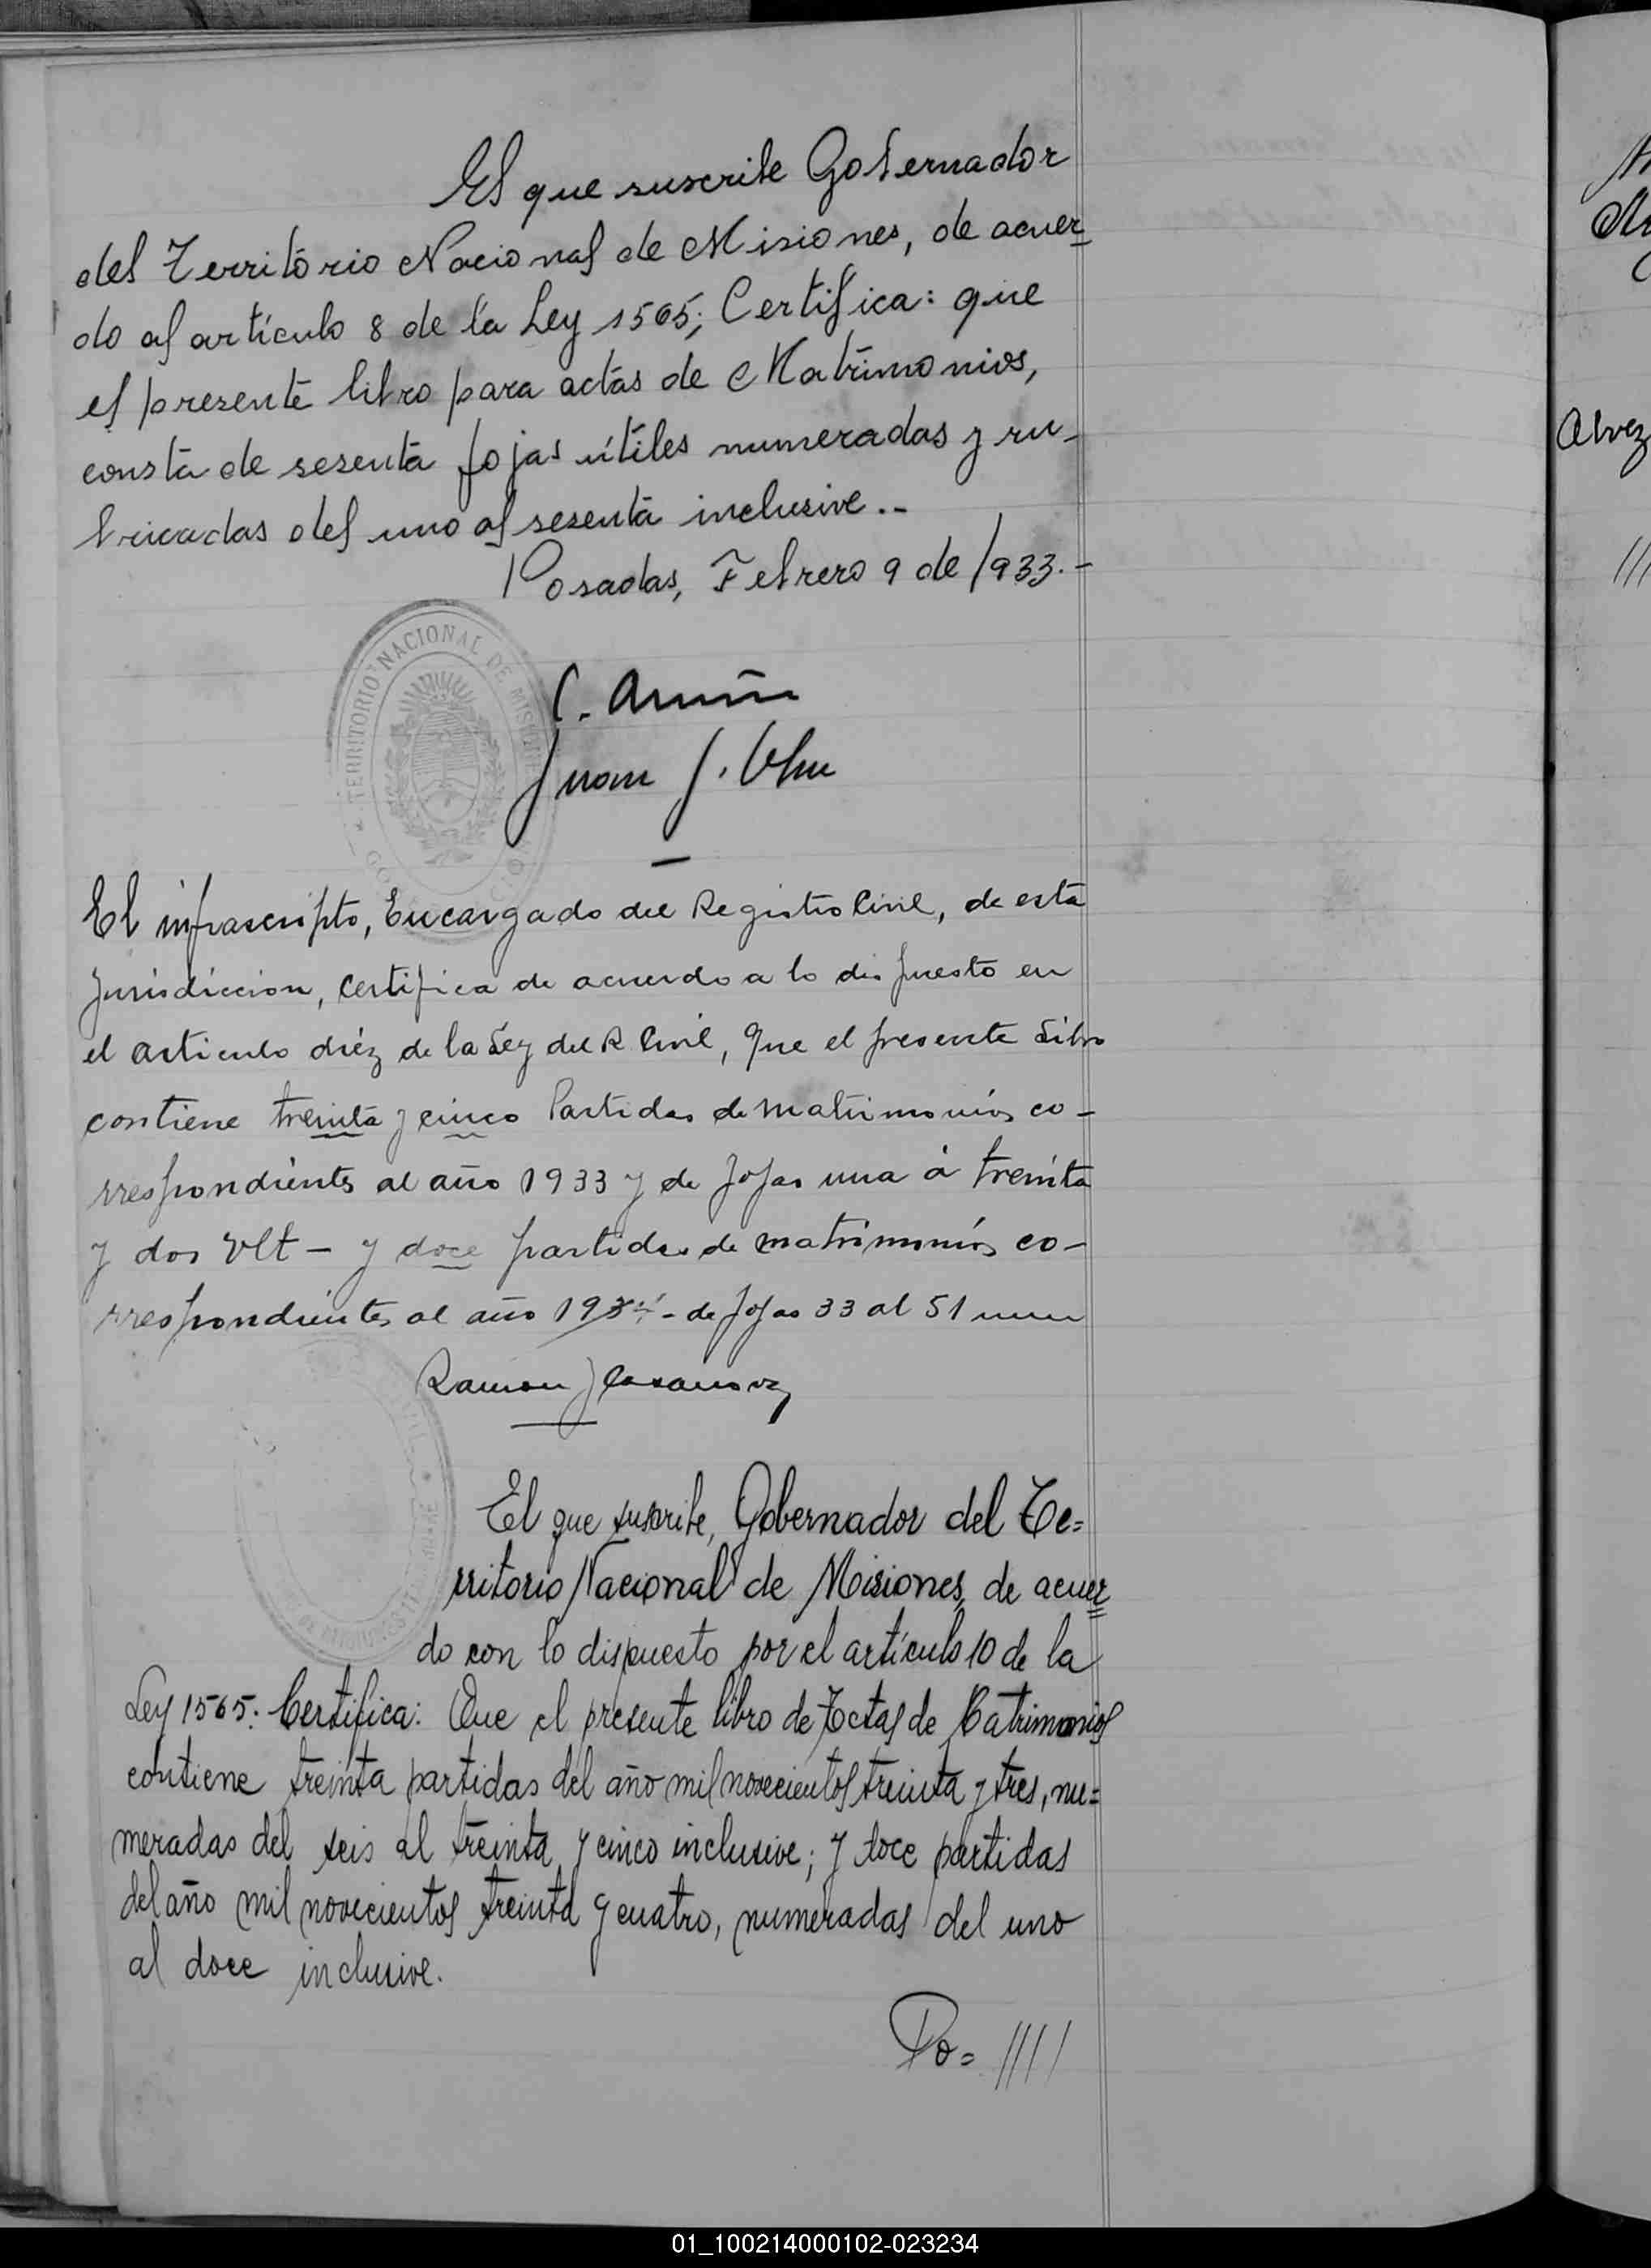 El que suscribe Gobernador
del Territorio Nacional de Misiones, de acuer
do al artículo 8 de la Ley 1565; Certifica: que
el presente libro para actas de Matrimonios,
consta de sesenta fojas útiles numeradas y ru-
bricadas del uno al sesenta inclusive..-
Posadas, Febrero 9 de 1933.-
TERRITORIO NACIONAL DE MISIONES
C.
Juan J.
El infrascripto, Encargado del Registro Civil, de esta
Jurisdiccion, Certifica de acuerdo a lo dispuesto en
el articulo diéz de la Ley del R Civil, que el presente Libro
contiene treinta y cinco Partidas de matrimonios co-
rrespondientes al año 1933 y de fojas una á treinta
y dos Vlt - y doce partidas de matrimonios co-
rrespondientes al año 1934 - de fojas 33 al 51
Ramon J Casanova
El que suscribe, Gobernador del Te=
rritorio Nacional de Misiones, de acuer
do con lo dispuesto por el artículo 10 de la
Ley 1565: Certifica: Que el presente libro de Actas de Matrimonios
contiene treinta partidas del año mil novecientos treinta y tres, nu=
meradas del seis al treinta y cinco inclusive; y doce partidas
del año mil novecientos treinta y cuatro, numeradas del uno
al doce inclusive.
Po= ////
Alvez
///
01_100214000102-023234